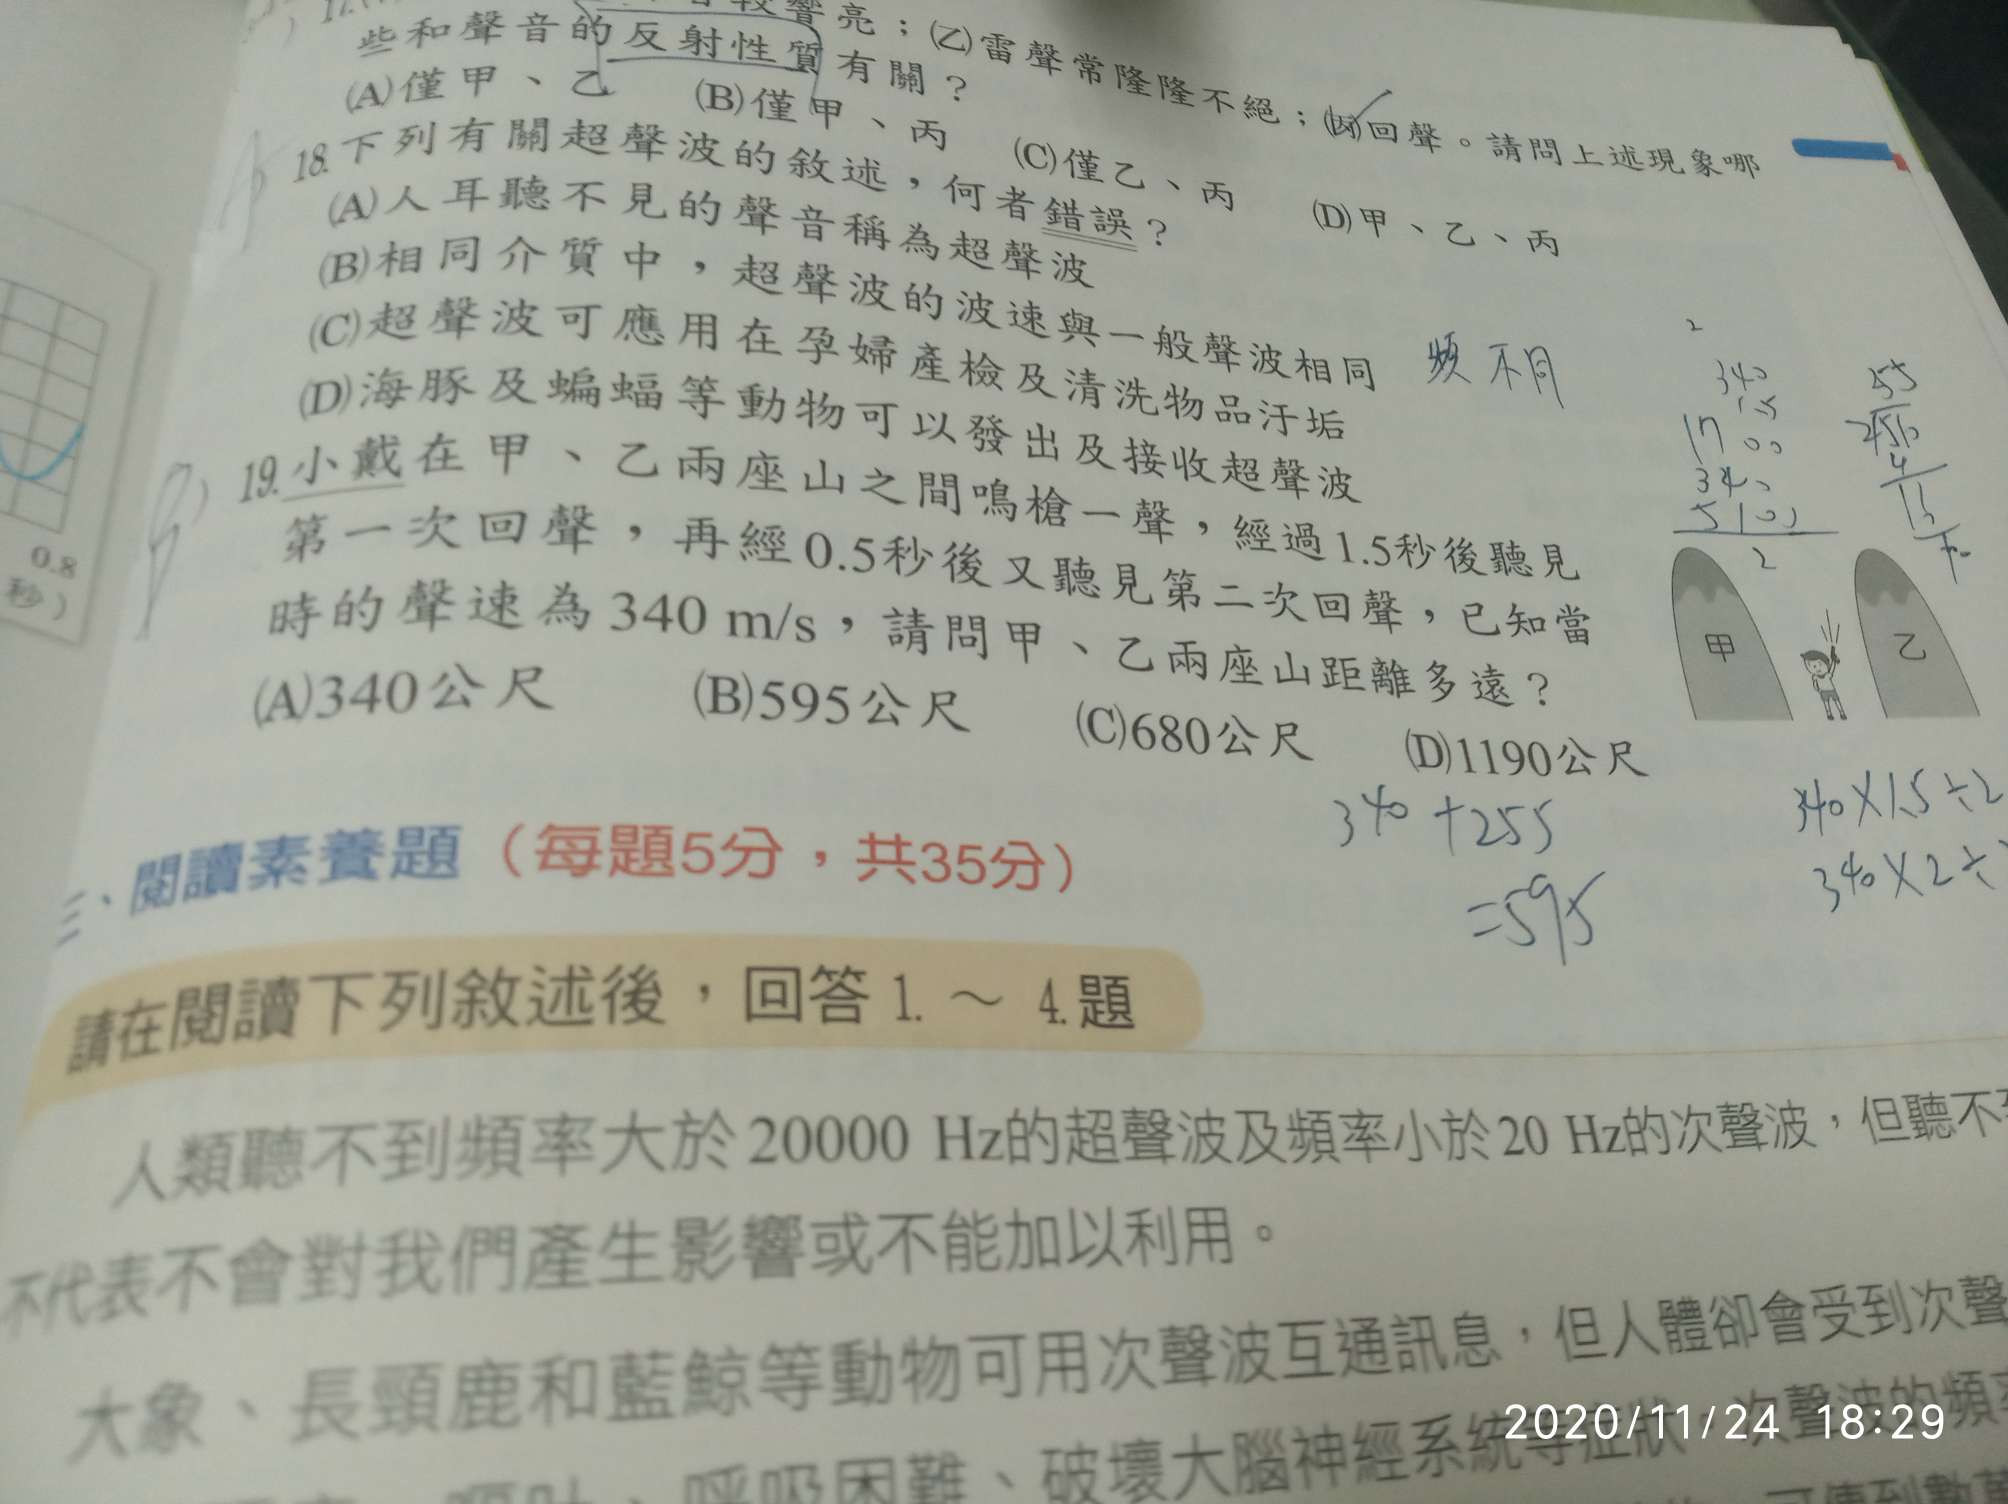 響亮；(乙)雷聲常隆隆不絕；(丙)回聲。請問上述現象哪
些和聲音的反射性質有關？
(A)僅甲、乙 (B)僅甲、丙 (C)僅乙、丙 (D)甲、乙、丙
18.下列有關超聲波的敘述，何者錯誤？
(A)人耳聽不見的聲音稱為超聲波
(B)相同介質中，超聲波的波速與一般聲波相同
頻不同
(C)超聲波可應用在孕婦產檢及清洗物品汙垢
(D)海豚及蝙蝠等動物可以發出及接收超聲波
19.小戴在甲、乙兩座山之間鳴槍一聲，經過1.5秒後聽見
第一次回聲，再經0.5秒後又聽見第二次回聲，已知當
時的聲速為340 m/s，請問甲、乙兩座山距離多遠？
(A)340公尺 (B)595公尺 (C)680公尺 (D)1190公尺
2
340
1.5
1700
340
5100
2
255
2510
4
11
甲
乙
340+255
=595
340×1.5÷2
340×2÷
0.8
秒）
三、閱讀素養題（每題5分，共35分）
請在閱讀下列敘述後，回答1.～4.題
人類聽不到頻率大於20000 Hz的超聲波及頻率小於20 Hz的次聲波，但聽不
不代表不會對我們產生影響或不能加以利用。
大象、長頸鹿和藍鯨等動物可用次聲波互通訊息，但人體卻會受到次聲
嘔吐、呼吸困難、破壞大腦神經系統等症狀。次聲波的頻率
2020/11/24 18:29